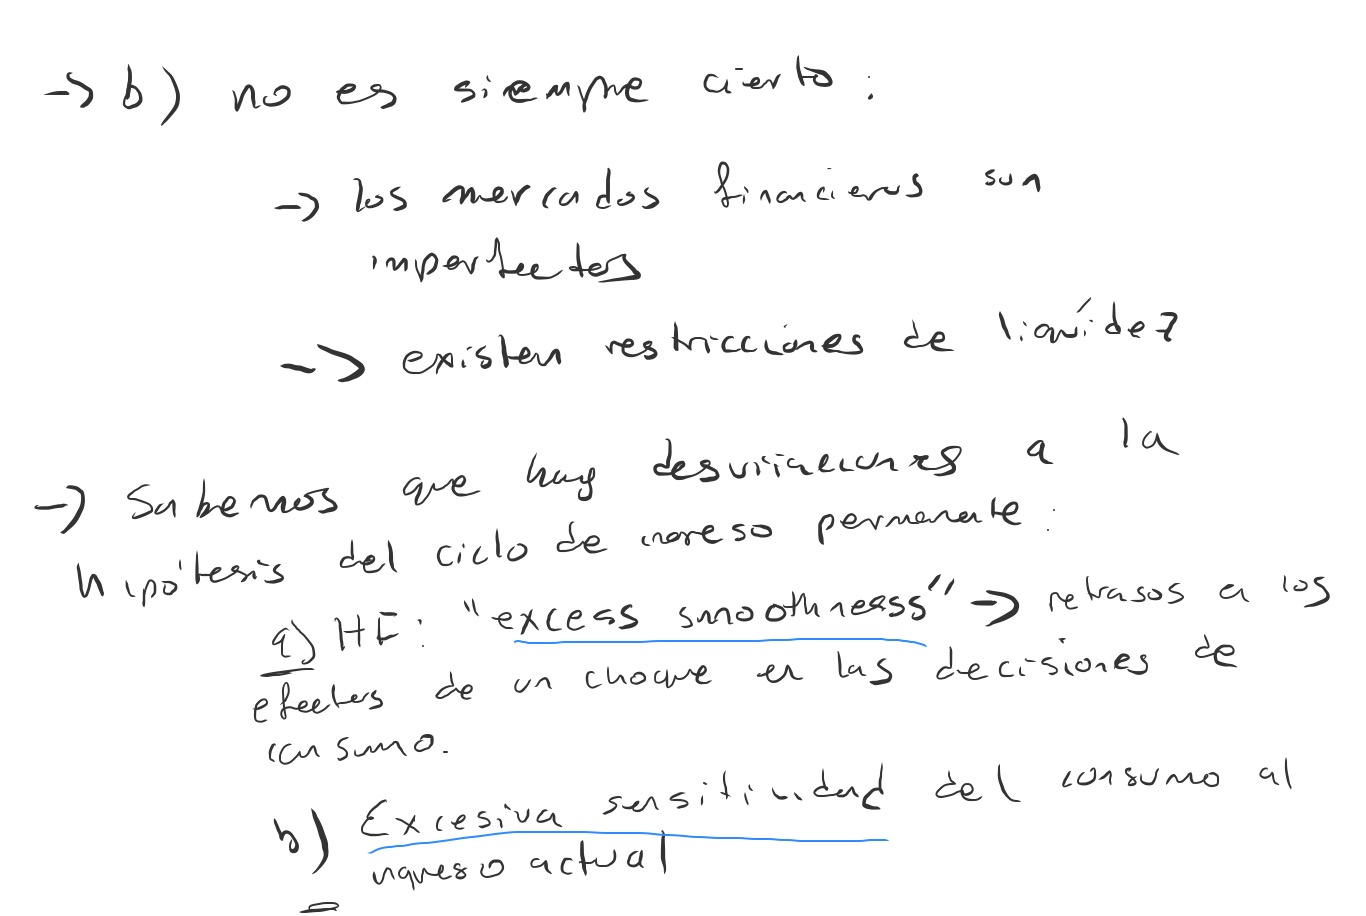 -> b) no es siempre cierto:
-> los mercados financieros son
imperfectos
-> existen restricciones de liquídez
-> Sabemos que hay desviaciones a la
hipótesis del ciclo de ingreso permanente:
a) HF: "excess smoothness" -> retrasos a los
efectos de un choque en las decisiones de
consumo.
b) Excesiva sensitividad del consumo al
ingreso actual